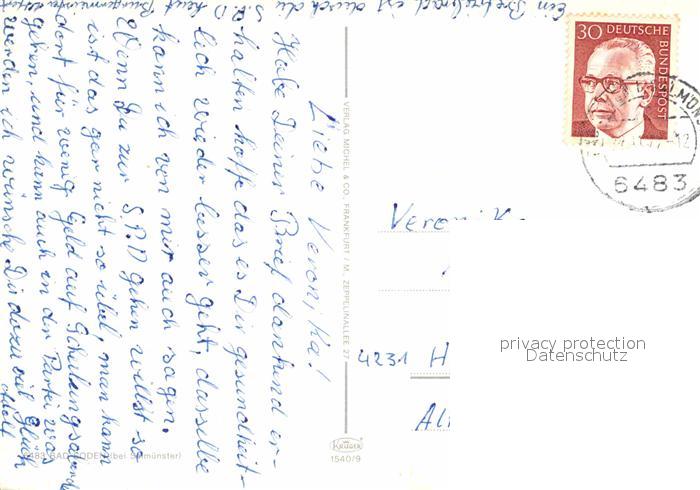 Ein Betriebsrat ist durch die S.P.D heut Bürgermeister
Liebe Veronika!
Habe Deinen Brief dankend er-
halten hoffe das es Dir gesundheit-
lich wieder besser geht, dasselbe
kann ich von mir auch sagen.
Wenn Du zur S.P.D gehen willst so
ist das gar nicht so übel, man kann
dort für wenig Geld auf Schulungsabend
gehen, und kann auch in der Partei was
werden ich wünsche Dir dazu viel Glück
VERLAG MICHEL & CO., FRANKFURT / M., ZEPPELINALLEE 27
30 DEUTSCHE
BUNDESPOST
6483
Veronik
4231 H
privacy protection
Datenschutz
KRÜGER
1540/9
6483 BAD SODEN (bei Salmünster)